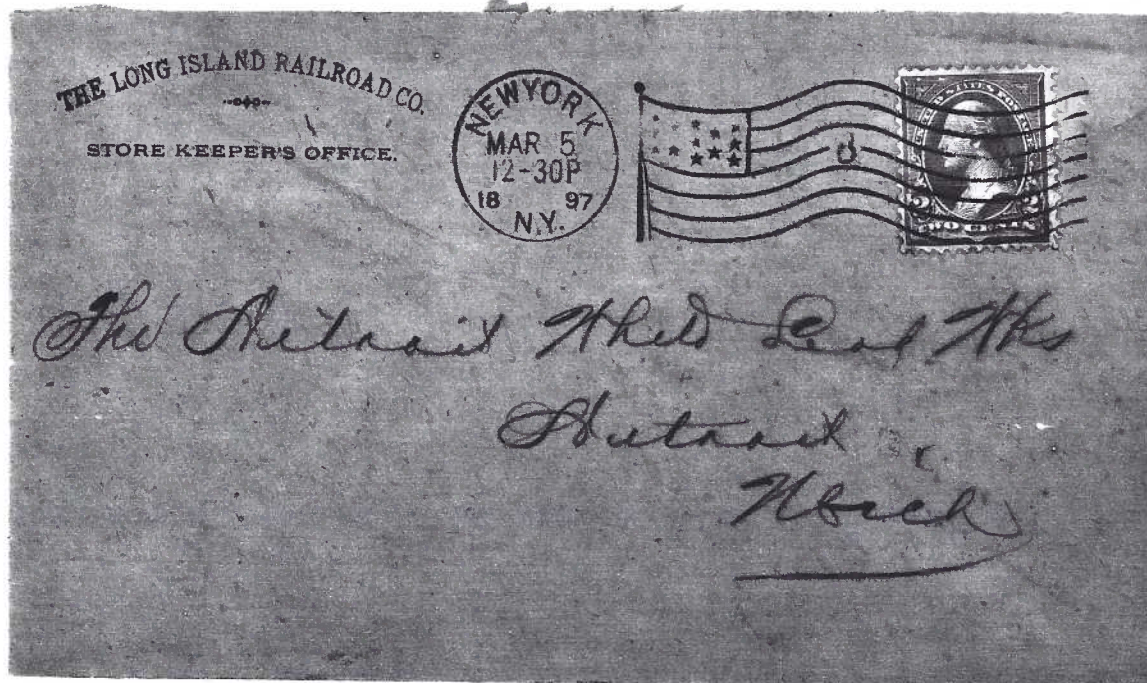 THE LONG ISLAND RAILROAD CO.
STORE KEEPER'S OFFICE.
NEW YORK
MAR 5
12-30P
18 97
N.Y.
2 2
TWO CENTS
The Detroit White Lead Wks
Detroit
Mich